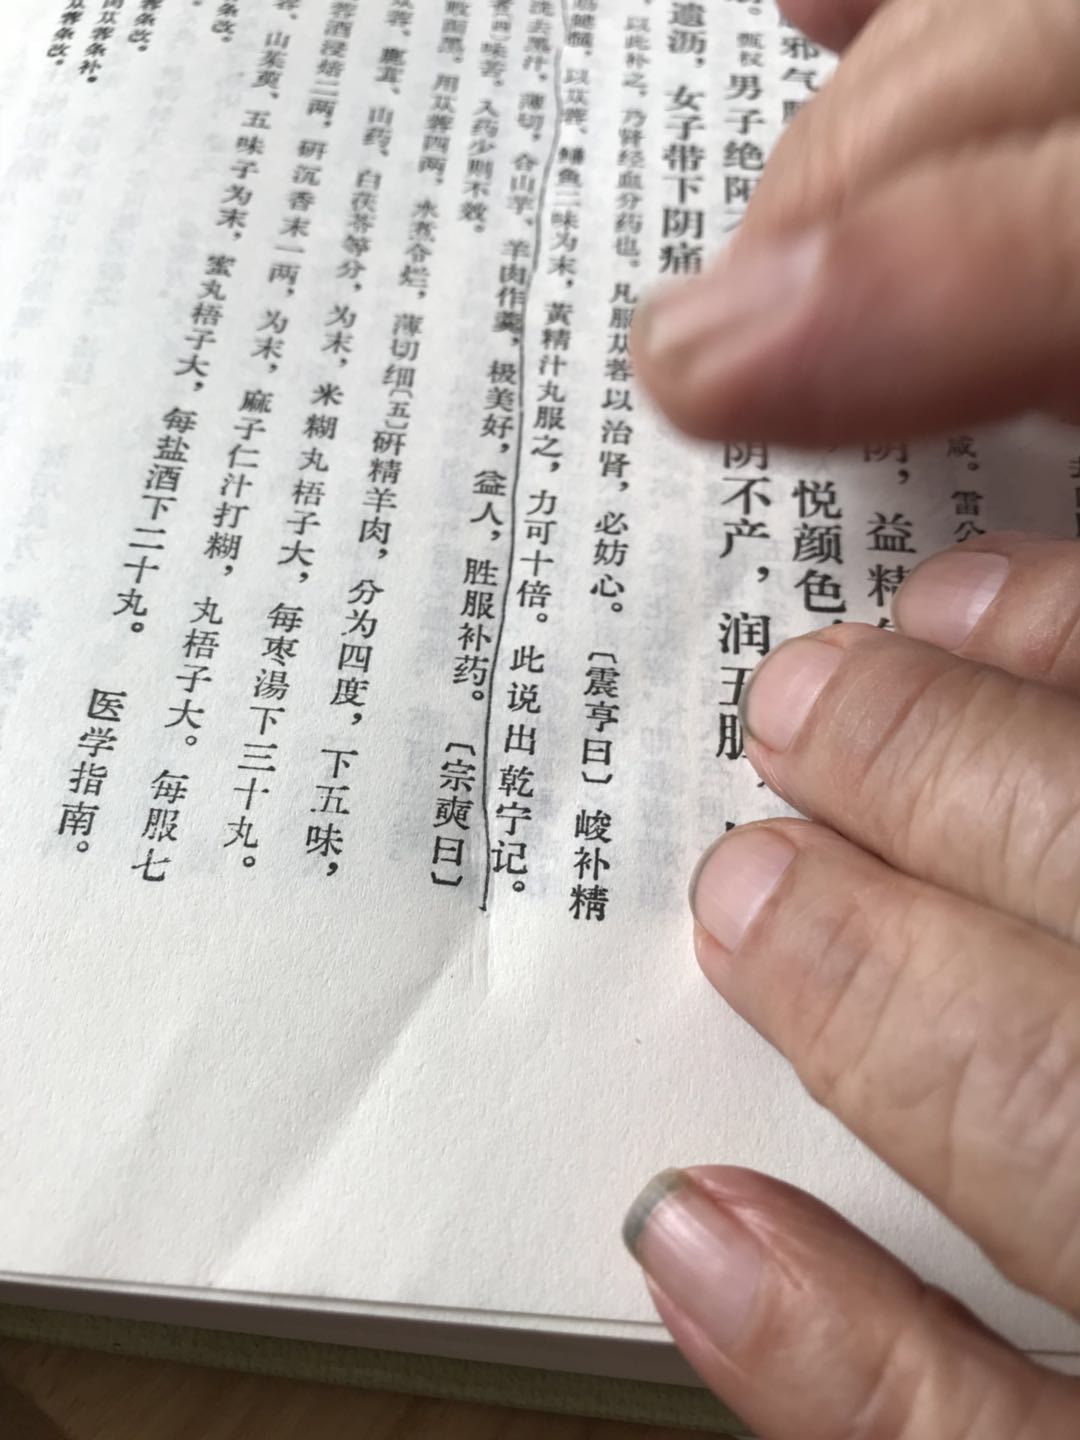 雷公
阴，益精
悦颜色
男子绝阳
阴不产，润五脏
遗沥，女子带下阴痛
以此补之，乃肾经血分药也。凡服苁蓉以治肾，必妨心。〔震亨曰〕峻补精
以苁蓉、鳝鱼二味为末，黄精汁丸服之，力可十倍。此说出乾宁记。
洗去黑汁，薄切，合山芋、羊肉作羹，极美好，益人，胜服补药。〔宗奭曰〕
味苦，入药少则不效。
败面黑。用苁蓉四两，水煮令烂，薄切细〔五〕研精羊肉，分为四度，下五味，
山药、白茯苓等分，为末，米糊丸梧子大，每枣湯下三十丸。
蓉酒浸焙二两，研沉香末一两，为末，麻子仁汁打糊，丸梧子大。每服七
山茱萸、五味子为末，蜜丸梧子大，每盐酒下二十丸。 医学指南。
条改。
蓉条改。
苁蓉条补。
苁蓉条改。